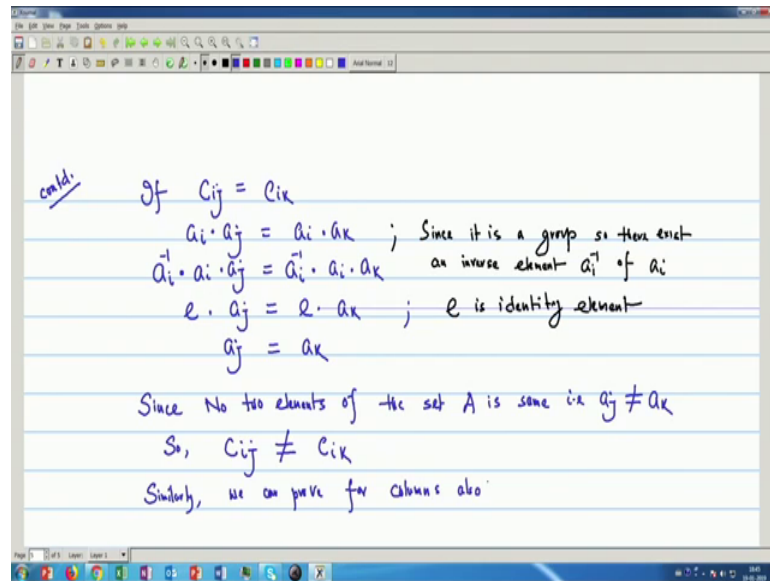 Journal
File Edit View Page Tools Options Help
Arial Normal 12
contd.
If Cij = Cik
ai · aj = ai · ak ; Since it is a group so there exist
ai⁻¹ · ai · aj = ai⁻¹ · ai · ak an inverse element ai⁻¹ of ai
e · aj = e · ak ; e is identity element
aj = ak
Since No two elements of the set A is same i.e aj ≠ ak
So, Cij ≠ Cik
Similarly, we can prove for columns also
Page 5 of 5 Layer: Layer 1